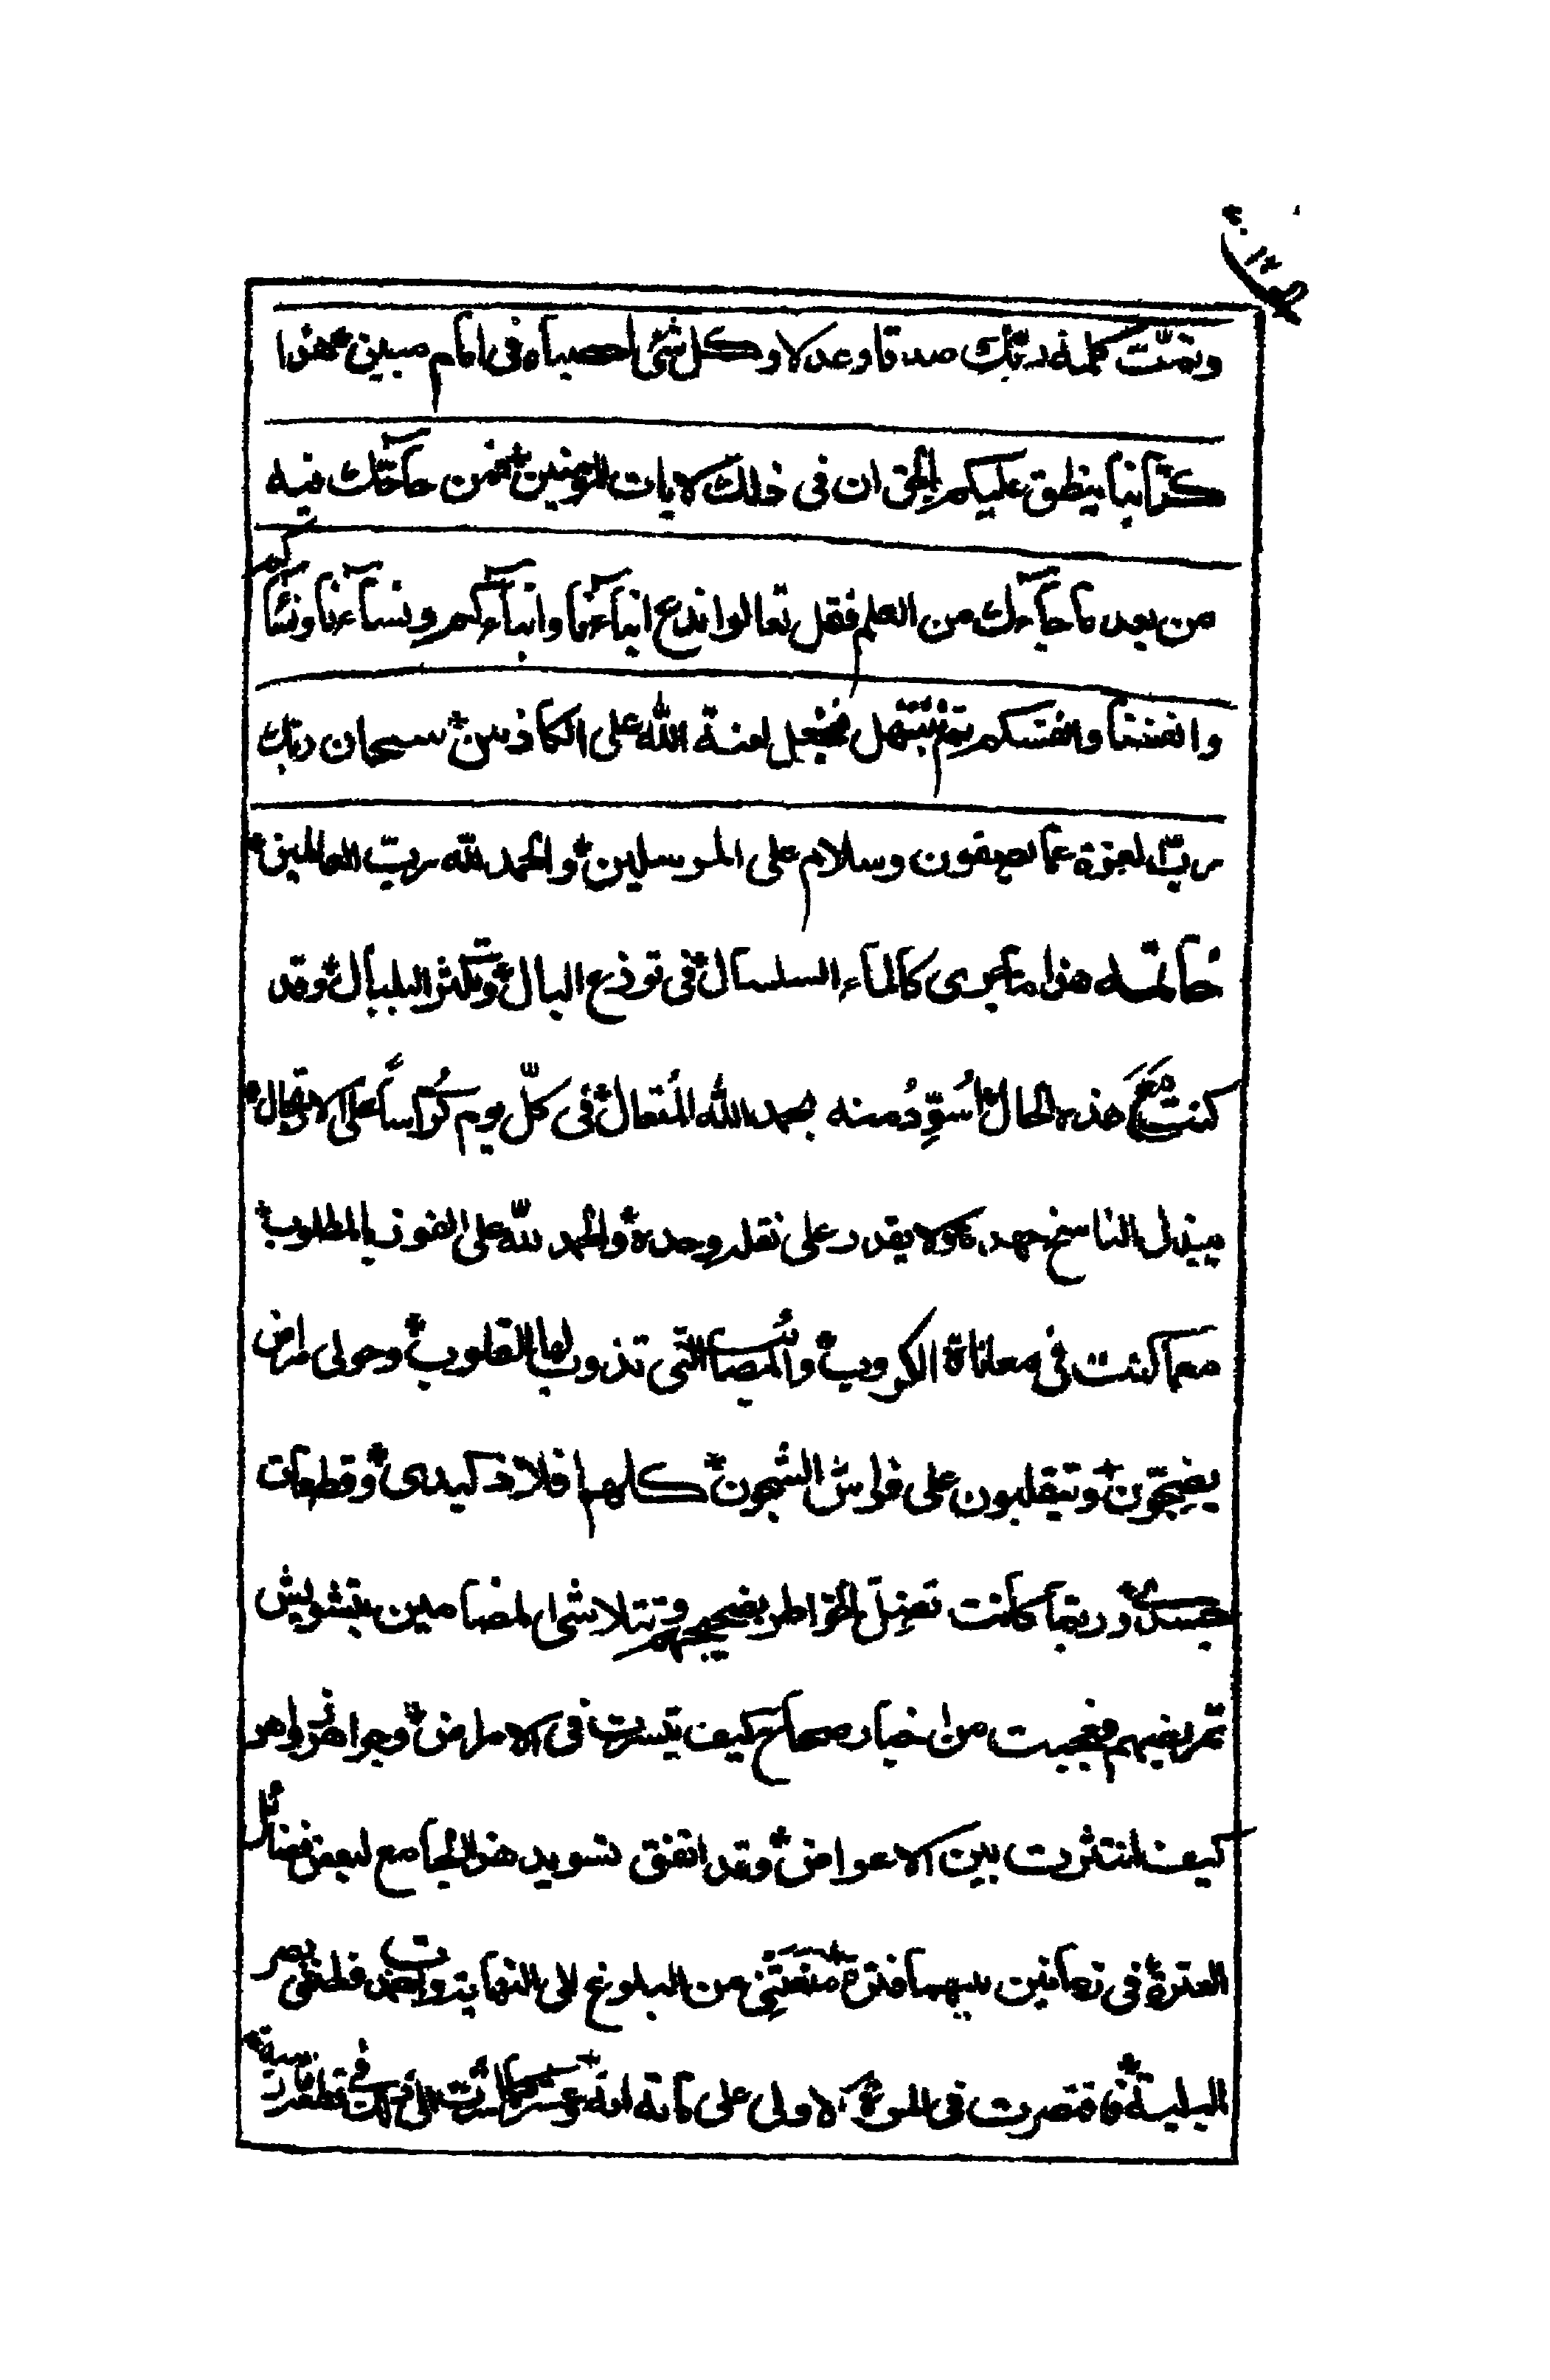 وتمّت كلمة ربّك صدقا وعدلا وكل شئ احصيناه فى امام مبين هذا
كتابنا ينطق عليكم بالحق ان فى ذلك لايات للمؤمنين فمن حآجّك فيه
من بعد ما جآءك من العلم فقل تعالوا ندع ابنآءنا وابنآءكم ونسآءنا ونسآءكم
وانفسنا وانفسكم ثم نبتهل فنجعل لعنة الله على الكاذبين سبحان ربّك
ربّ العزة عما يصفون وسلام على المرسلين والحمد لله ربّ العالمين
خاتمة هذا ما جرى كالماء السلسال فى توزع البال وتكثر البلبال وقد
كنت مع هذه الحال اُسَوِّدُ منه بحمد الله المُتعال فى كلّ يوم كُرّاساً على الارتجال
يبذل الناسخ جهده ولا يقدر على نقله وحده والحمد لله على الفوز بالمطلوب
مع ما كنت فى معاناة الكروب والمصائب التى تذوب لها القلوب وحولى مراض
يضجّون ويتقلبون على فراش الشجون كلهم افلاذ كبدى وقطعات
جسدى وربّما كانت تضلّ الخواطر بضجيجهم وتتلاشى المضامين بتشويش
تمريضهم فعجبت من اخبار صحاح كيف تيسرت فى الامراض وجواهر زواهر
كيف انتثرت بين الاعراض وقد اتفق تسويد هذا الجامع لبعض فضائل
العترة فى زمانين بينهما فترة منعتنى من البلوغ الى النهاية وانصرفت
البلية فاقتصرت فى المرة الاولى على مائة